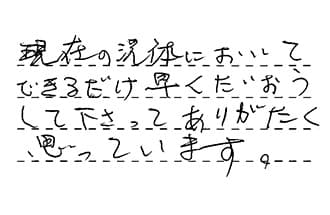 現在の状体において
できるだけ早くたいおう
して下さってありがたく
思っています。